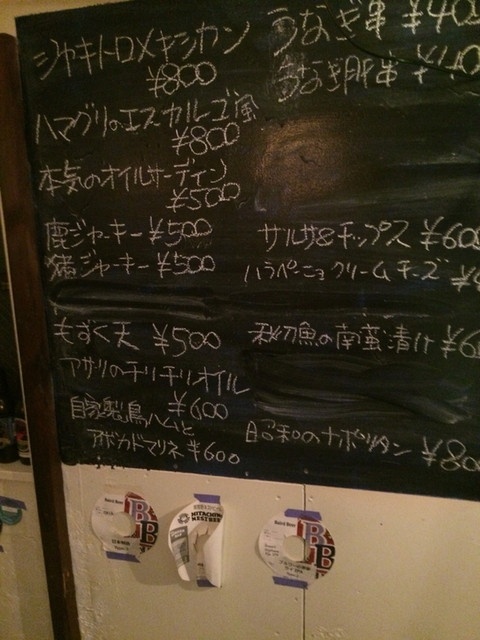 シャキトロメキシカン
¥800
ハマグリのエスカルゴ風
¥800
本気のオイルサーディン
¥500
鹿ジャーキー ¥500
猪ジャーキー ¥500
もずく天 ¥500
アサリのチリチリオイル
¥600
自家製鳥ハムと
アボカドマリネ ¥600
うなぎ串 ¥40
うなぎ肝串 ¥40
サルサ&チップス ¥600
ハラペーニョクリームチーズ ¥4
秋刀魚の南蛮漬け ¥6
昭和のナポリタン ¥80
Baird Beer
BB
HITACHINO
NEST BEER
Baird Beer
BB